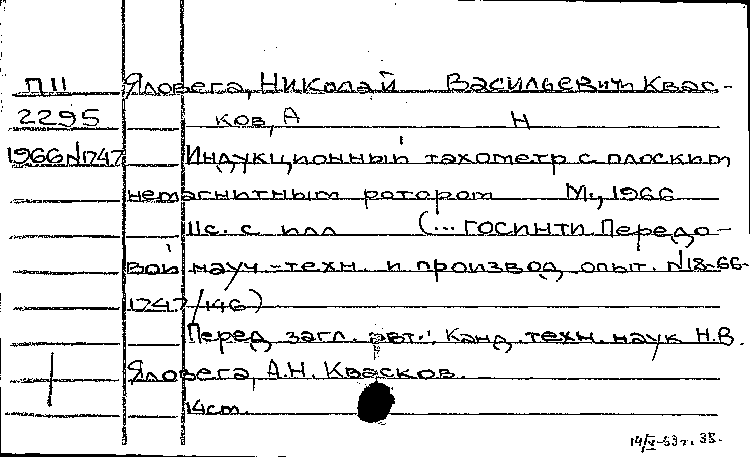 П11 Яловега, Николай Васильевич Квас-
2295 ков, А Н
1966 N1747 Индукционный тахометр с плоским
немагнитным ротором М., 1966
11с. с илл (... ГОСИНТИ Передо-
вой науч.-техн. и производ. опыт. N18-66-
1747/146)
Перед загл. авт.: Канд. техн. наук Н.В.
Яловега, А.Н. Квасков.
14 cm.